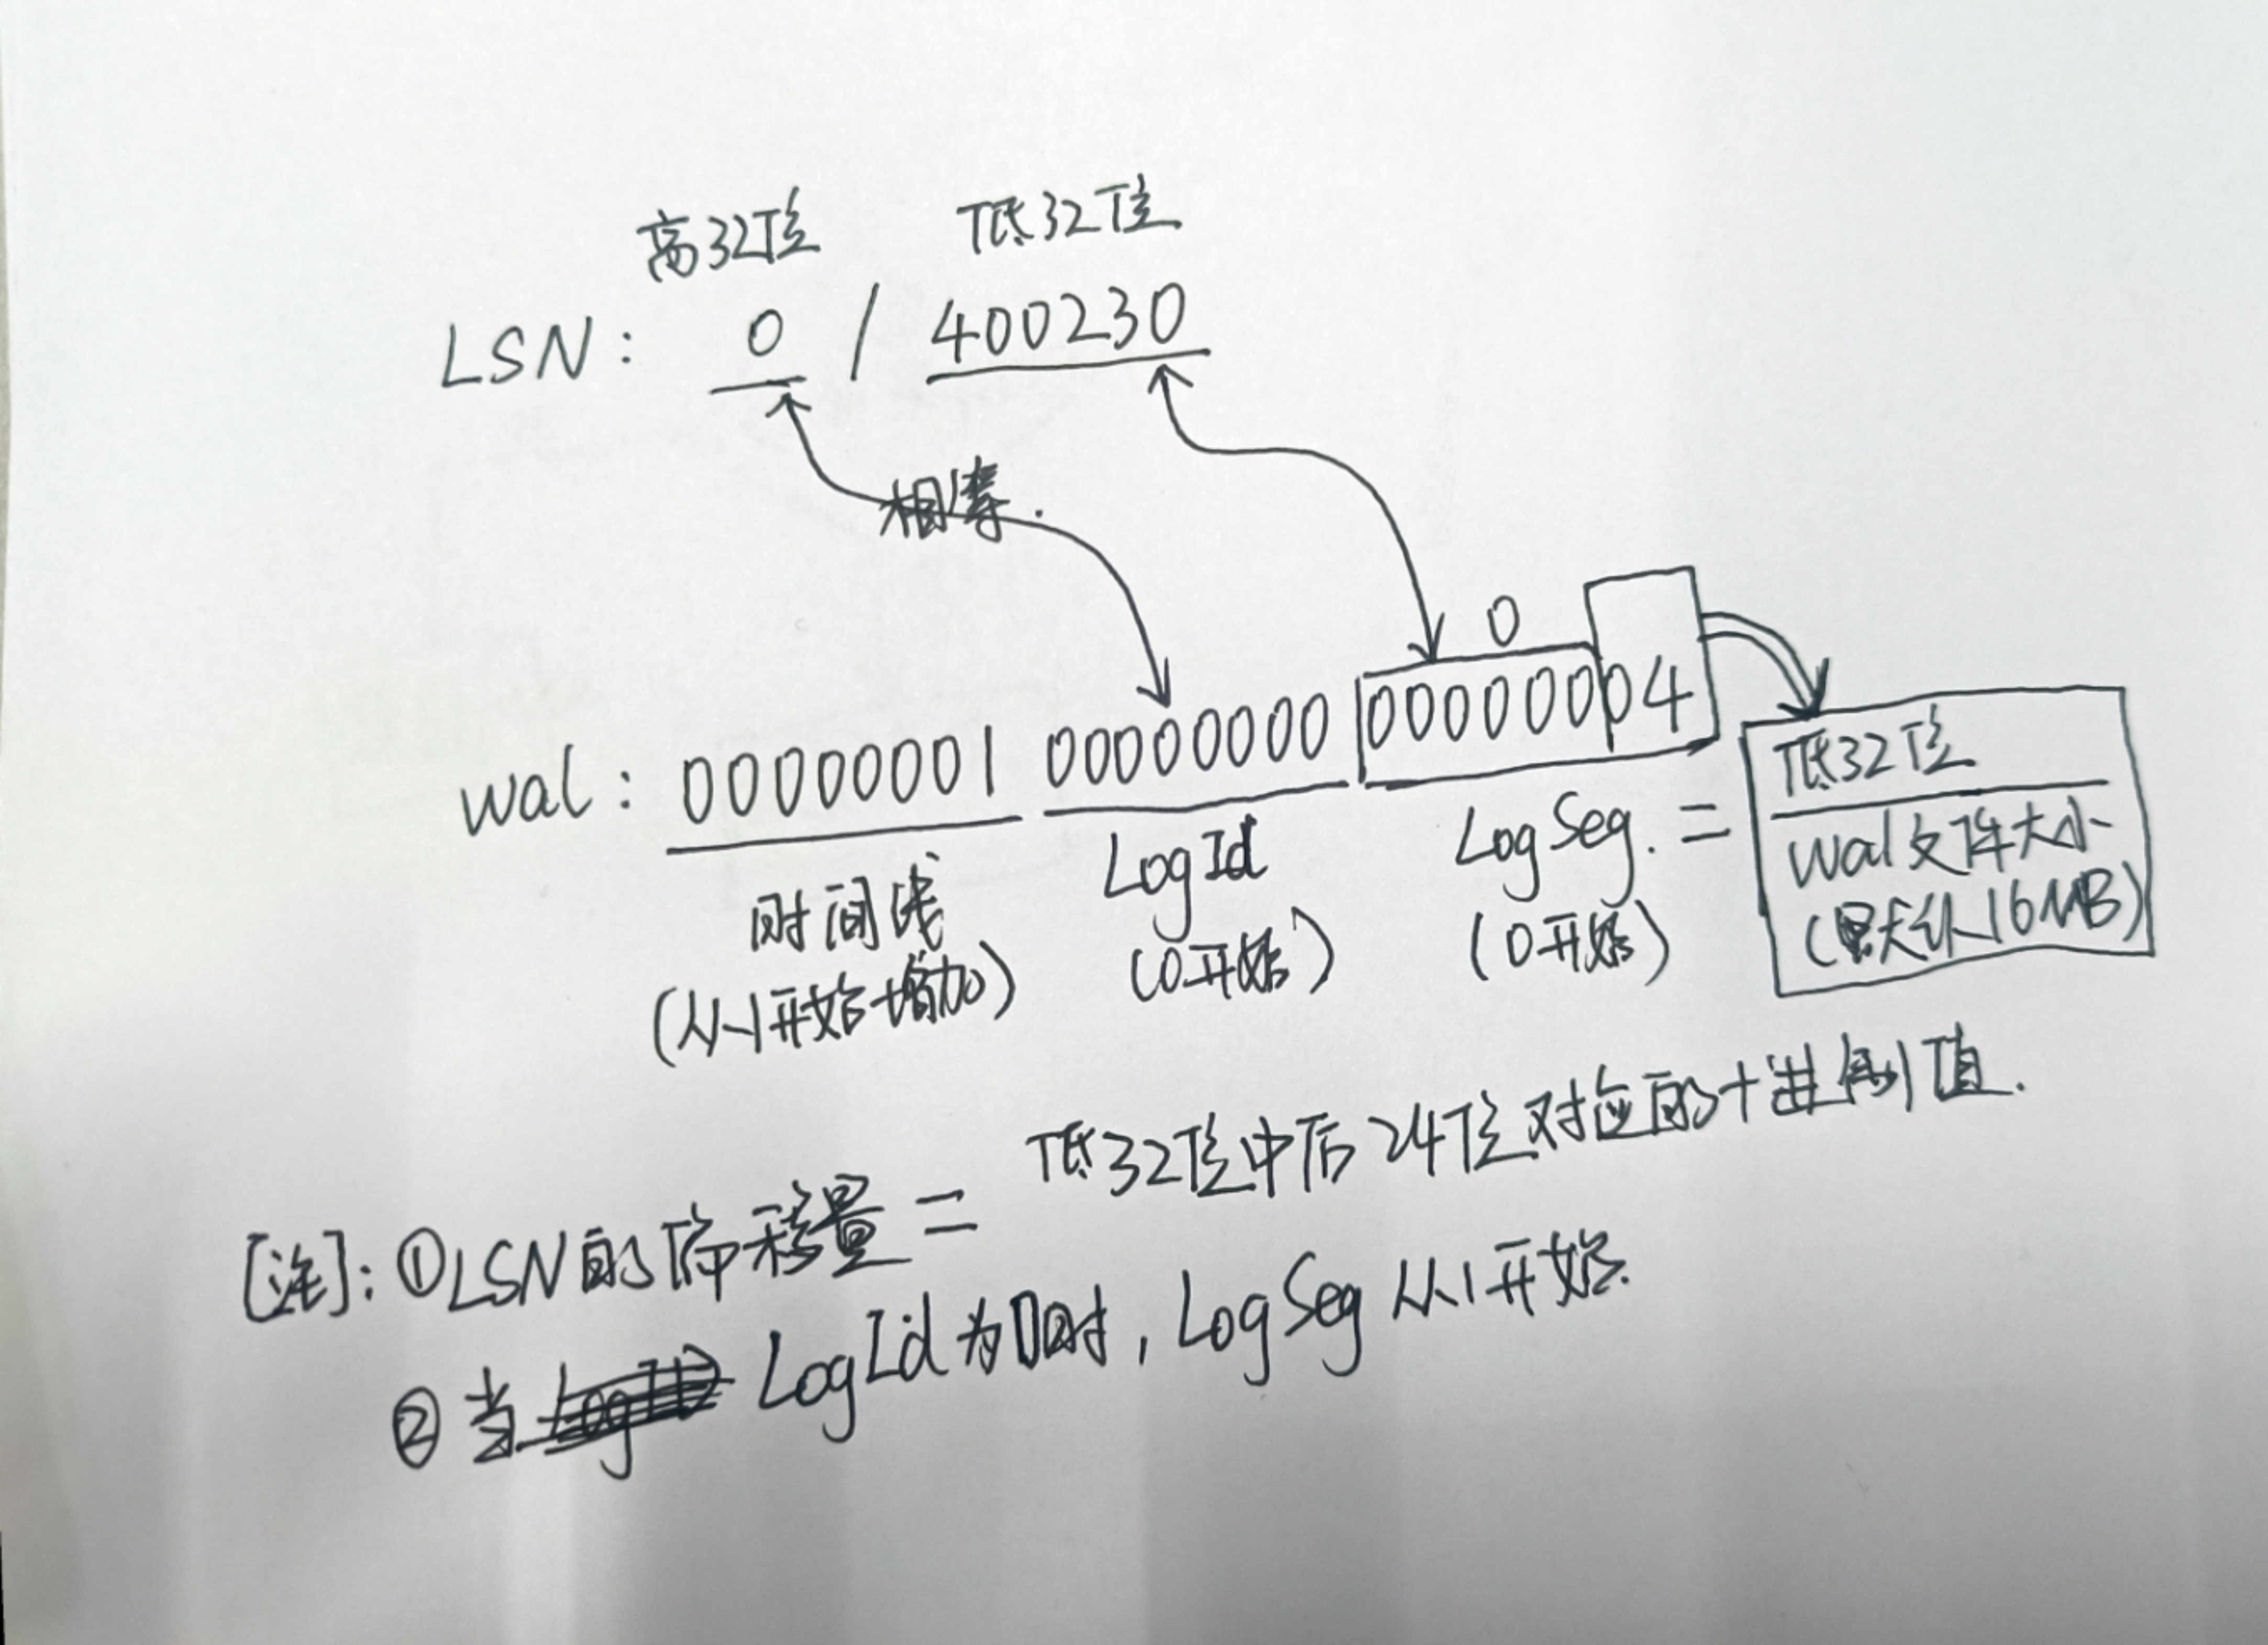 高32位 低32位
LSN: 0 / 400230
相等.
0
wal: 00000001 00000000 00000004
低32位
wal文件大小
(默认16MB)
时间线
(从1开始增加)
LogId
(0开始)
LogSeg. =
(0开始)
[注]: ①LSN的偏移量 = 低32位中后24位对应的十进制值.
②当 LogId为0时, LogSeg从1开始.